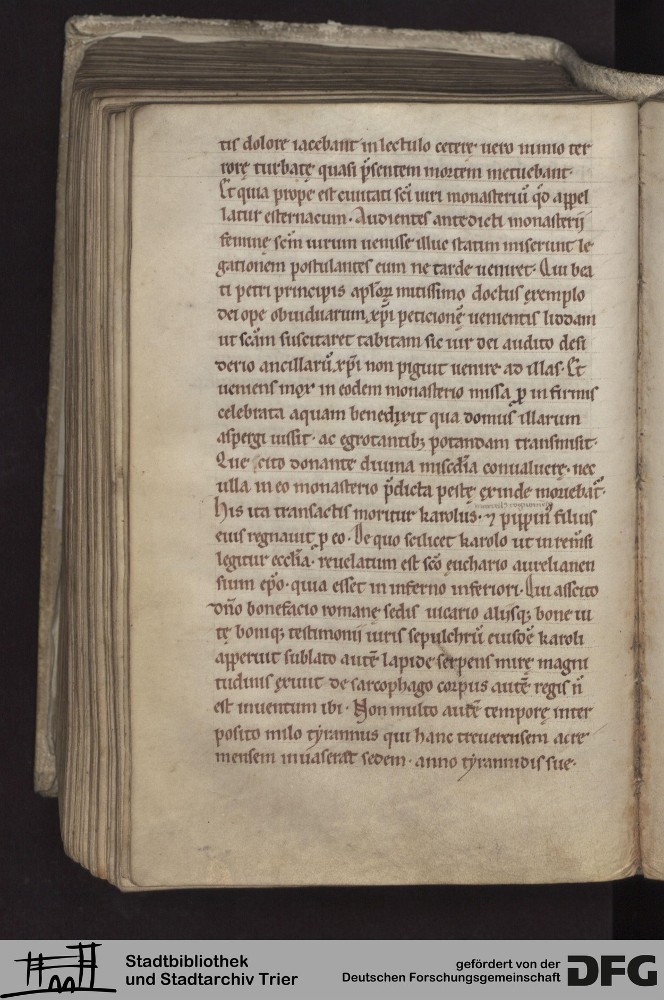 tis dolorę iacebant in lectulo cetere uero nimio ter
rorę turbatę quasi p̄sentem mortem metuebant·
Et quia prope est ciuitati sc̄i uiri monasteriū qd̄ appel
latur esternacum· Audientes antedicti monasterij
feminę sc̄m uirum uenisse illuc statim miserunt le
gationem postulantes eum ne tarde ueniret· Qui bea
ti petri principis apl̄oꝝ mitissimo doctus exemplo
dei ope ob uiduarum xp̄i peticionē uenientis liddam
ut sc̄am suscitaret tabitam sic uir dei audito desi
derio ancillarū xp̄i non piguit uenire ad illas· Et
ueniens mox in eodem monasterio missa ꝓ infirmis
celebrata aquam benedixit qua domus illarum
aspergi iussit· ac egrotantibꝫ potandam transmisit·
Quę cito donante diuina misc̄dia conualuerę· nec
ulla in eo monasterio p̄dicta pestę exinde mouebat᷑·
His ita transactis moritur karolus· ⁊ pippin᷒ filius
eius regnauit ꝓ eo· De quo scilicet karolo ut in remēsi
legitur eccl̄ia· reuelatum est sc̄o euchario aurelianen
sium ep̄o· quia esset in inferno inferiori· Qui asscito
dn̄o bonefacio romanę sedis uicario alijsqꝫ bone ui
tę boniqꝫ testimonii uiris sepulchrū eiusdē karoli
apperuit sublato autē lapide serpens mirę magni
tudinis exiuit de sarcophago corpus autē regis n̄
est inuentum ibi· Non multo autē temporę inter
posito milo tyrannus qui hanc treuerensem ac re
mensem inuaserat sedem· anno tyrannidis suę·
Stadtbibliothek
und Stadtarchiv Trier
gefördert von der
Deutschen Forschungsgemeinschaft
DFG